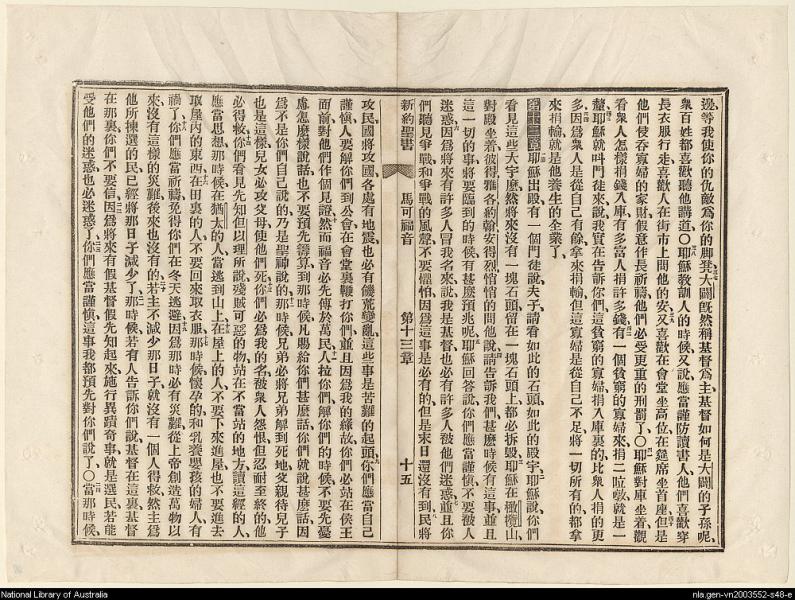 邊、等我使你的仇敵爲你的脚凳、大闢旣然稱基督爲主、基督如何是大闢的子孫呢、
衆百姓都喜歡聽他講道○耶穌敎訓人的時候、又說、應當謹防讀書人、他們喜歡穿
長衣服行走、喜歡人在街市上問他的安、又喜歡在會堂坐高位、在筵席坐首座、但是
他們侵呑寡婦的家財、假意作長祈禱、他們必受更重的刑罰了、○耶穌對庫坐着、觀
看衆人怎樣捐錢入庫、有多富人捐許多錢、有一個貧窮的寡婦來、捐二
釐、耶穌就叫門徒來、說、我實在告訴你們、這貧窮的寡婦捐入庫裏的、比衆人捐的更
多、因爲衆人是從自己有餘拿來捐輸、但這寡婦是從自己不足、將一切所有的都拿
來捐輸、就是他養生的全業了、
第十三章 耶穌出殿、有一個門徒說、夫子、請看如此的石頭、如此的殿宇、耶穌說、你們
看見這些大宇麽、然將來沒有一塊石頭留在一塊石頭上、都必拆毀、耶穌在橄欖山、
對殿坐着、彼得雅各約翰安得烈悄悄的問他說、請告訴我們、甚麽時候有這事、並且
這一切的事將要臨到的時候、有甚麽預兆呢、耶穌回答說、你們應當謹慎、不要被人
迷惑、因爲將來有許多人冒我名來說、我是基督、也必有許多人被他們迷惑、並且你
們聽見爭戰和爭戰的風聲、不要懼怕、因爲這事是必有的、但是末日還沒有到、民將
新約聖書 馬可福音 第十三章 十五
攻民、國將攻國、各處有地震、也必有饑荒變亂、這些事是苦難的起頭、你們應當自己
謹慎、人要解你們到公會、在會堂裏鞭打你們、並且因爲我的緣故、你們必站在侯王
面前、對他們作個見證、然而福音必先傳於萬民、人拉你們解你們的時候、不要先憂
慮怎麽樣說話、也不要預先籌算、到那時候、凡賜給你們甚麽話、你們就說甚麽話、因
爲不是你們自己說的、乃是聖神說的、那時候、兄弟必將兄弟解到死地、父親待兒子
也是這樣、兒女必攻父母、使他們死、你們必爲我的名、被衆人怨恨、但忍耐至終的、他
必得救、你們看見先知但以理所說殘賊可惡的物、站在不當站的地方、讀這經的人、
應當思想、那時候、在猶太的人、當逃到山上、在屋上的人、不要下來進屋、也不要進去
取屋內的東西、在田裏的人、不要回來取衣服、那時候懷孕的和乳養嬰孩的婦人有
禍了、你們應當祈禱、免得你們在冬天逃避、因爲那時必有災難、從上帝創造萬物以
來、沒有這樣的災難、後來也沒有的、若主不減少那日子、就沒有一個人得救、然主爲
他所揀選的民、已經將那日子減少了、那時候、若有人告訴你們說、基督在這裏、基督
在那裏、你們不要信、因爲將來有假基督假先知起來、施行異蹟奇事、就是選民、若能
受他們的迷惑、也必迷惑了、你們應當謹慎、這事我都預先對你們說了、○當那時候、
National Library of Australia
nla.gen-vn2003552-s48-e